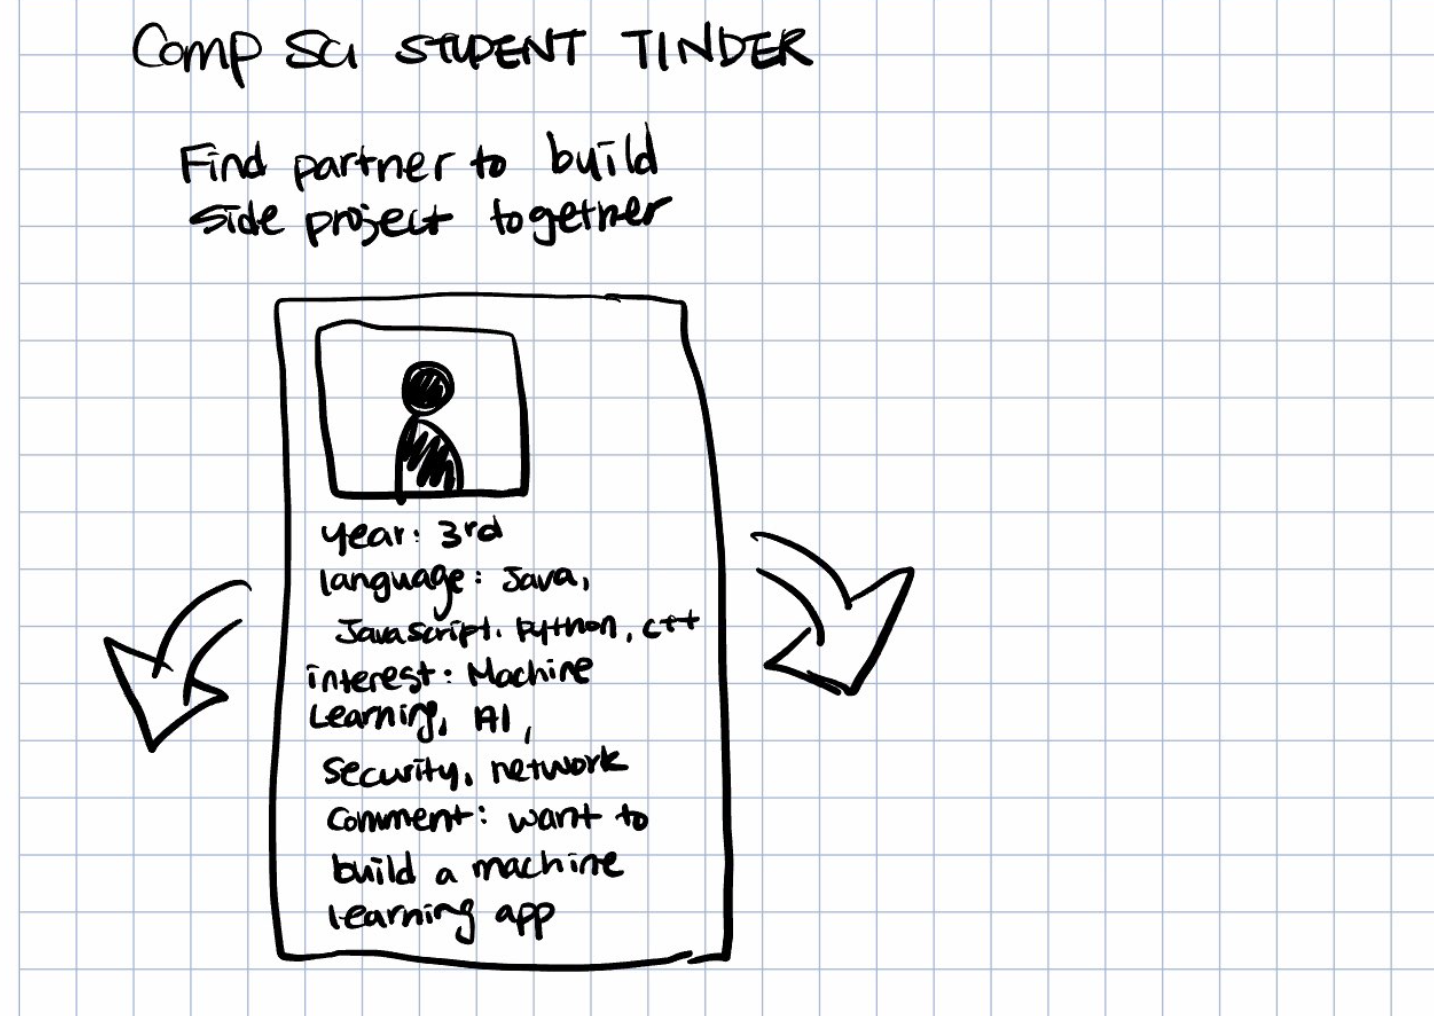 Comp Sci STUDENT TINDER
Find partner to build
side project together
year: 3rd
language: Java,
Javascript, Python, C++
interest: Machine
Learning, AI,
security, network
comment: want to
build a machine
learning app